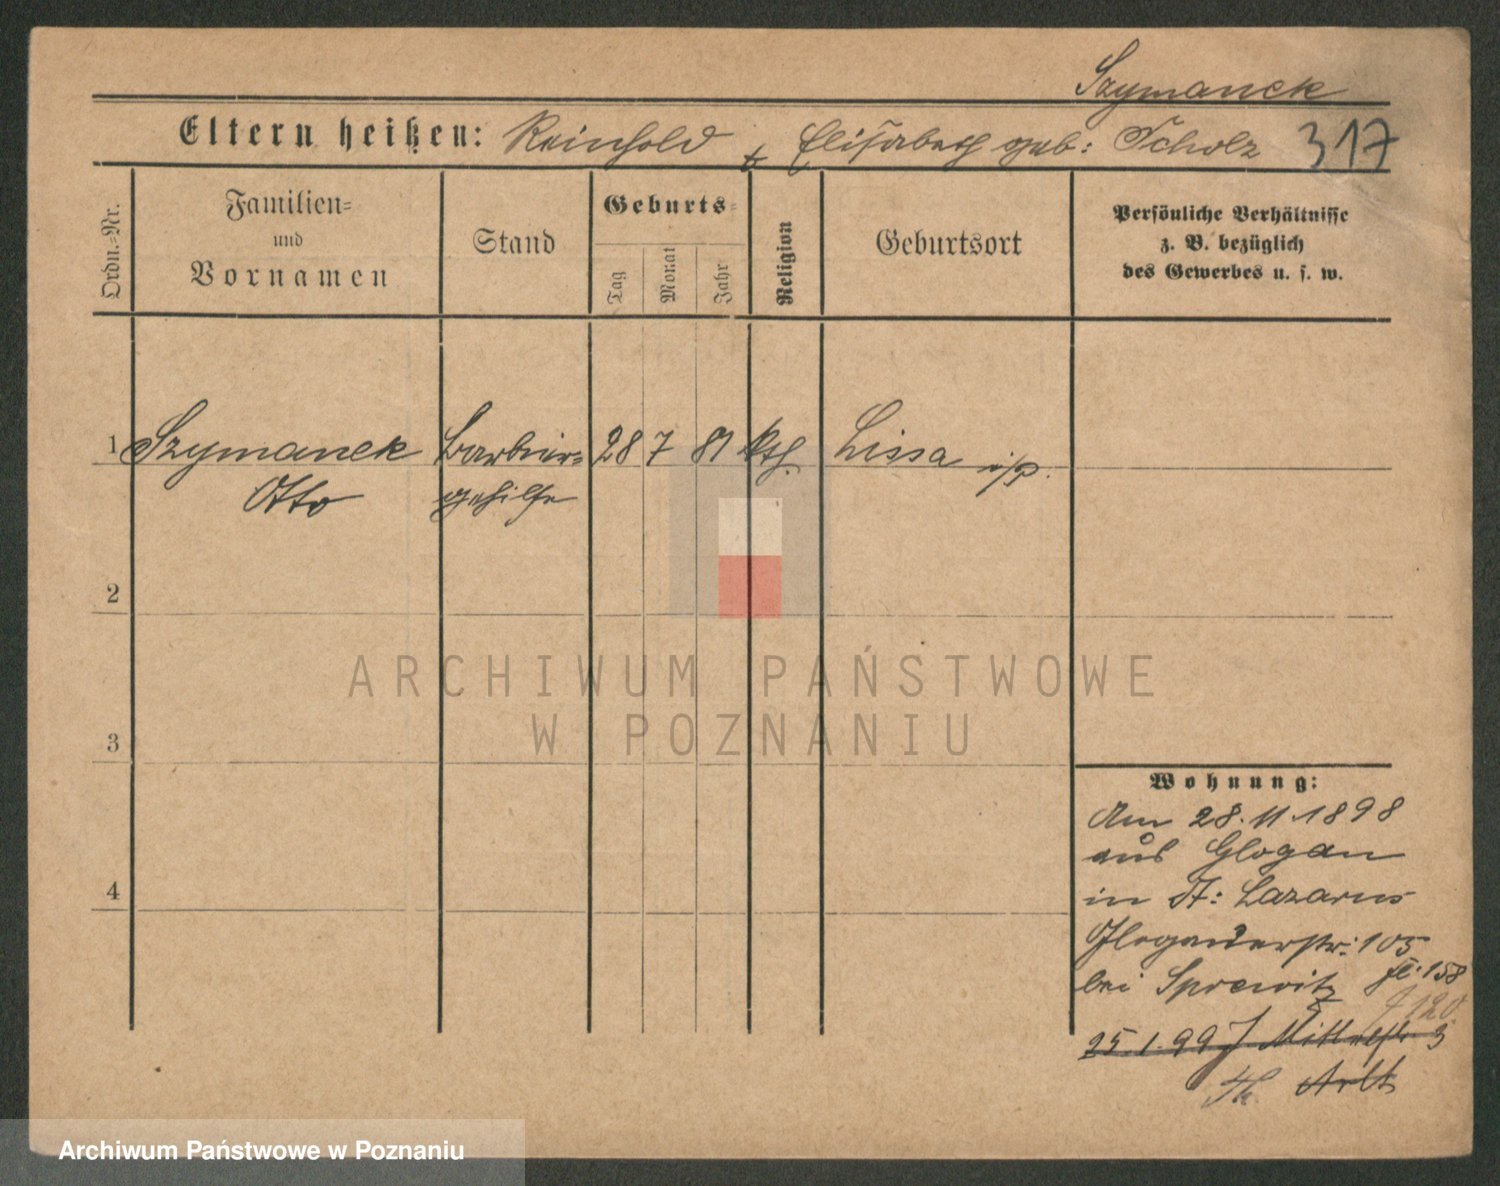 Szymanek
Eltern heißen: Reinhold u. Elisabeth geb: Scholz 317
Ordn.-Nr.
Familien-
und
Vornamen
Stand
Geburts-
Tag
Monat
Jahr
Religion
Geburtsort
Persönliche Verhältnisse
z. B. bezüglich
des Gewerbes u. s. w.
1 Szymanek Barbier- 28 7 81 kth. Lissa i/p.
Otto gehilfe
2
3
4
ARCHIWUM PAŃSTWOWE
W POZNANIU
Wohnung:
Am 28.11.1898
aus Glogau
in St: Lazarus
Glogauerstr: 105
bei Sprewitz fl: 158
J 120
25.1.99 J Mittelstr 3
Arlt
Archiwum Państwowe w Poznaniu